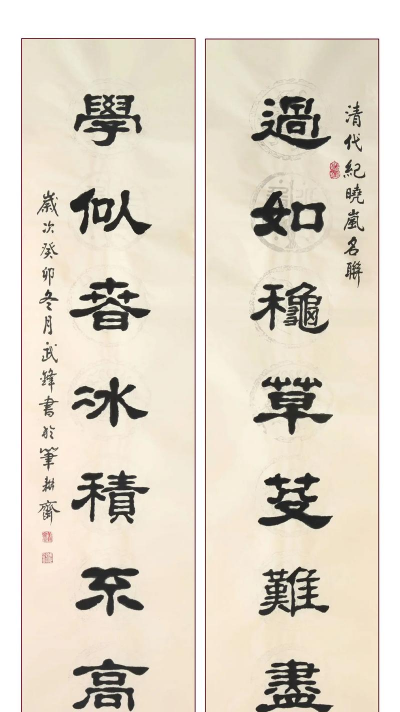 清代紀曉嵐名聯
過如龝草芟難盡
學似春冰積不高
歲次癸卯冬月武鋒書於筆耕齋